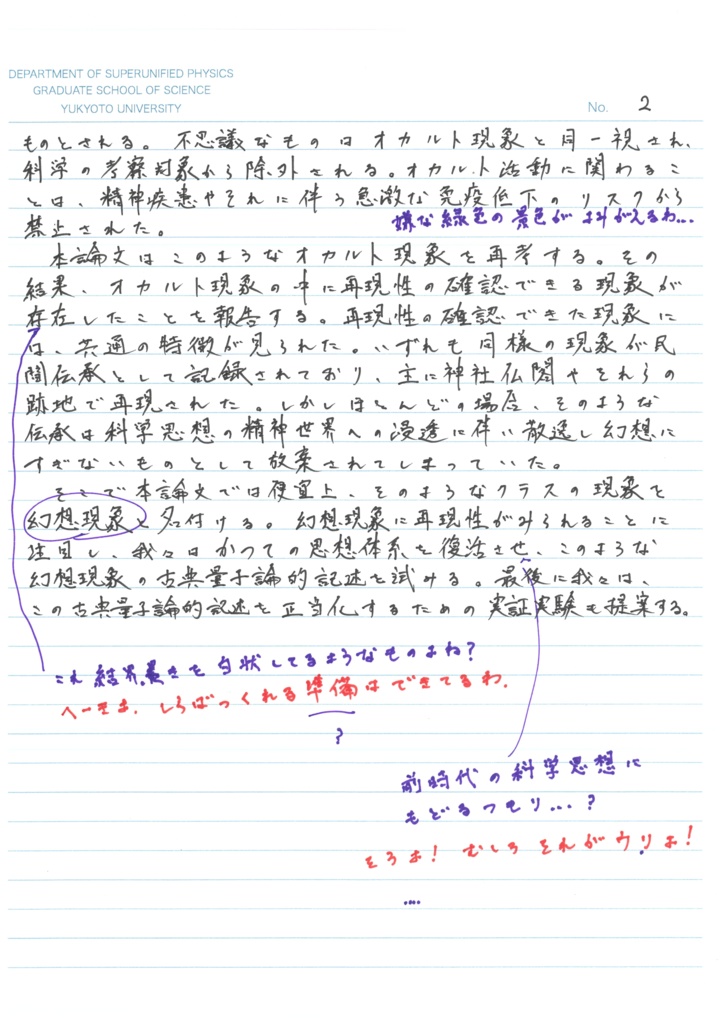 DEPARTMENT OF SUPERUNIFIED PHYSICS
GRADUATE SCHOOL OF SCIENCE
YUKYOTO UNIVERSITY
No. 2
ものとされる。不思議なものはオカルト現象と同一視され、
科学の考察対象から除外される。オカルト活動に関わるこ
とは、精神疾患やそれに伴う急激な免疫低下のリスクから
禁止された。
嫌な緑色の景色がよみがえるわ…
本論文はこのようなオカルト現象を再考する。その
結果、オカルト現象の中に再現性の確認できる現象が
存在したことを報告する。再現性の確認できた現象に
は、共通の特徴が見られた。いずれも同様の現象が民
間伝承として記録されており、主に神社仏閣やそれらの
跡地で再現された。しかしほとんどの場合、そのような
伝承は科学思想の精神世界への浸透に伴い散逸し幻想に
すぎないものとして放棄されてしまっていた。
そこで本論文では便宜上、そのようなクラスの現象を
幻想現象と名付ける。幻想現象に再現性がみられることに
注目し、我々はかつての思想体系を復活させ、このような
幻想現象の古典量子論的記述を試みる。最後に我々は、
この古典量子論的記述を正当化するための実証実験も提案する。
これ結界暴きを白状してるようなものよね?
へーきよ、しらばっくれる準備はできてるわ.
?
前時代の科学思想に
もどるつもり…?
そうよ! むしろ それがウリよ!
....